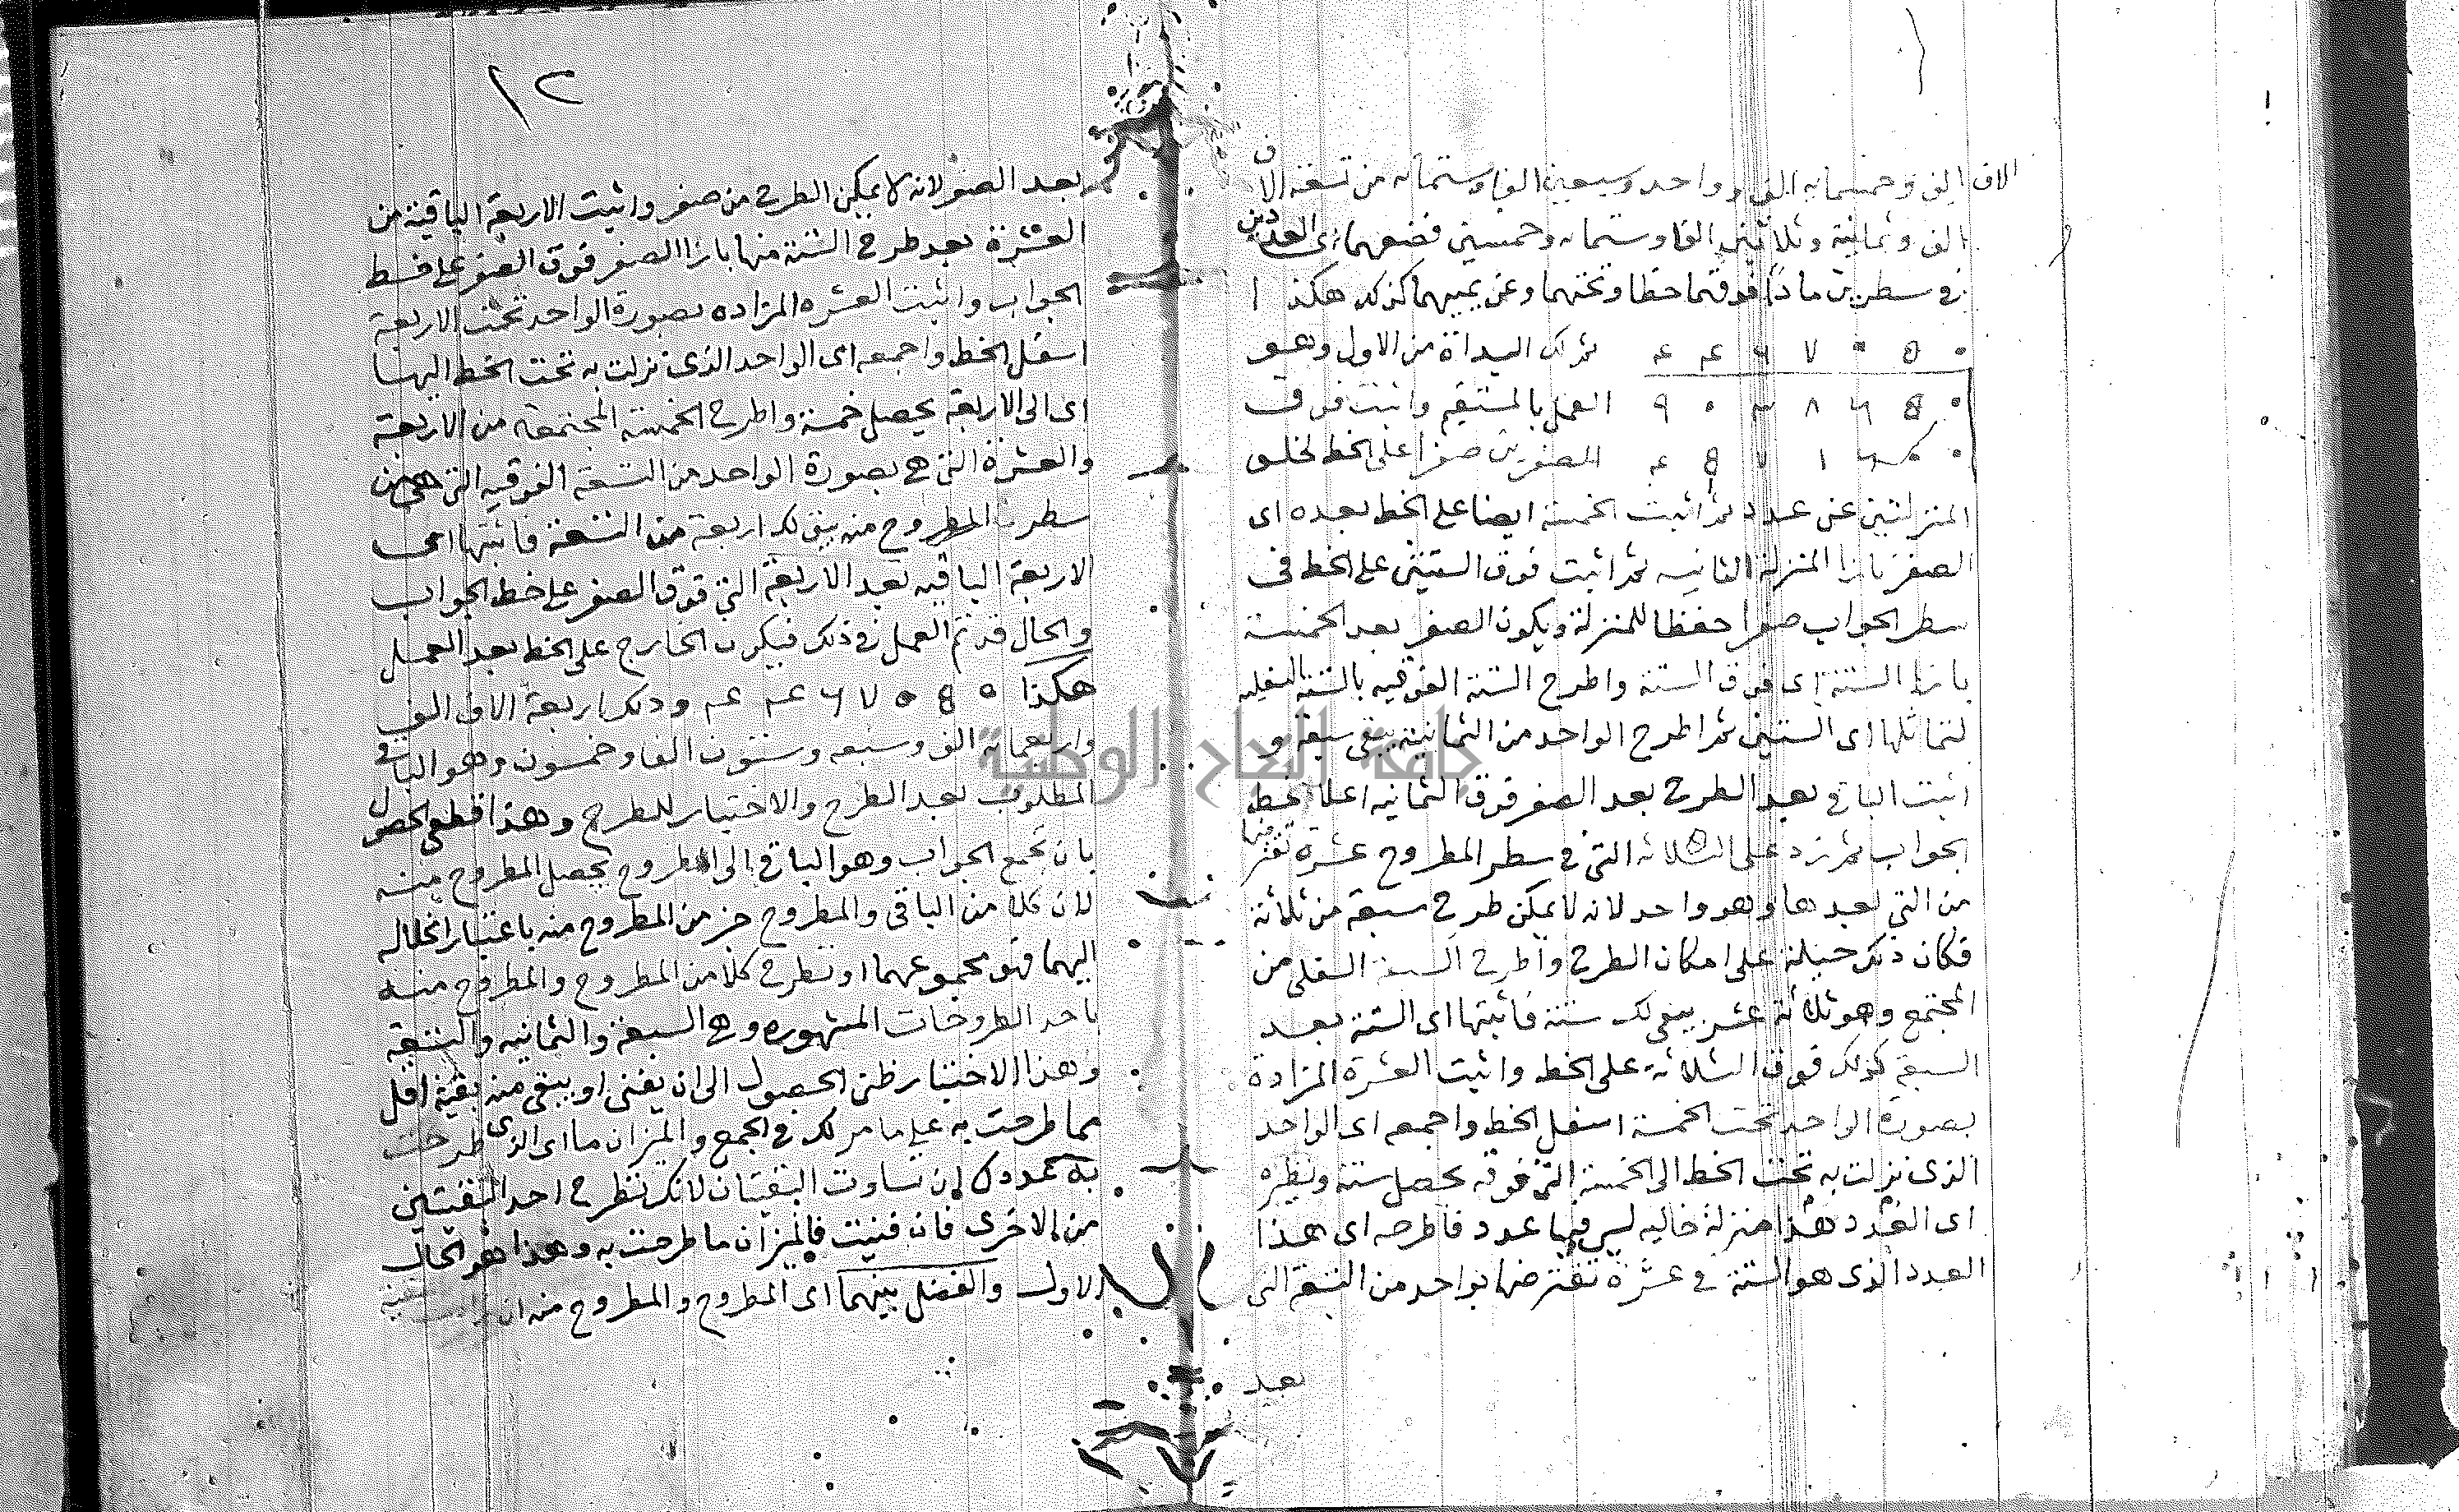 الاف الف وخمسمايه الف وواحد وسبعين الفا وستمايه من تسعة الاف
الف وثمانية وثلاثين الفا وستمايه وخمسين فضعهما اى العددين
في سطرين مادا فوقهما خطا وتحتهما وعن يمينهما كذلك هكذا
ثم لك البداة من الاول وهو
العمل بالمستقيم واثبت فوق
الصفرين صفرا على الخط لخلو
المنزلتين عن عدد ثم اثبت الخمسة ايضا على الخط بعده اى
الصفر بازا المنزلة الثانيه ثم اثبت فوق الستتين على الخط في
سطر الجواب صفرا حفظا للمنزلة ويكون الصفر بعد الخمسة
بازا الستة اى فوق الستة واطرح الستة الفوقيه بالستة السفليه
لتماثلها اى الستتين ثم اطرح الواحد من الثمانية يبقى سبعة و
اثبت الباقي بعد الطرح بعد الصفر فوق الثمانيه اعلا الخط
الجواب ثم زد على الثلاثه التي في سطر المطروح عشرة تقترضها
من التي بعدها وهو واحد لانه لا يمكن طرح سبعة من ثلاثة
فكان ذلك حيلة على امكان الطرح واطرح السبعة السفلى من
المجتمع وهو ثلاثة عشر يبقى لك ستة فاثبتها اى الستة بعد
السبعة كذلك فوق الثلاثة على الخط واثبت العشرة المزادة
بصورة الواحد تحت الخمسة اسفل الخط واجمعه اى الواحد
الذى نزلت به تحت الخط الى الخمسة التي فوقه يحصل ستة ونظيره
اى العدد هذا منزلة خاليه ليس فيها عدد فاطرحه اى هذا
العدد الذى هو الستة في عشرة تقترضها بواحد من التسعة التي
بعد
١٢
بعد الصفر لانه لا يمكن الطرح من صفر واثبت الاربعة الباقية من
العشرة بعد طرح الستة منها بازا الصفر فوق الصفر على خط
الجواب واثبت العشره المزاده بصورة الواحد تحت الاربعة
اسفل الخط واجمعه اى الواحد الذى نزلت به تحت الخط اليها
اى الى الاربعة يحصل خمسة واطرح الخمسة المجتمعة من الاربعة
والعشرة التي هي بصورة الواحد من التسعة الفوقيه التي هي من
سطر المطروح منه يبقى لك اربعة من التسعة فاثبتها اى
الاربعة الباقيه بعد الاربعة التي فوق الصفر على خط الجواب
والحال قد تم العمل في ذلك فيكون الخارج على الخط بعد العمل
هكذا ٤٤٦٧٠٥٠ وذلك اربعة الاف الف
واربعمايه الف وسبعه وستون الفا وخمسون وهو الباقي
المطلوب بعد الطرح والاختبار للطرح وهذا قطعى الحصول
بان تجمع الجواب وهو الباقي الى المطروح يحصل المطروح منه
لان كلا من الباقى والمطروح جز من المطروح منه باعتبار انحلاله
اليهما فهو مجموعهما او تطرح كلا من المطروح والمطروح منه
باحد الطروحات المشهوره وهي السبعة والثمانيه والتسعة
وهذا الاختبار ظنى الحصول الى ان يفنى او يبقى منه بقية اقل
مما طرحت به على ما مر لك في الجمع والميزان ما اى الذى طرحت
به عدده ان تساوت البقيتان لانك تطرح احد البقيتين
من الاخرى فان فنيت فالميزان ما طرحت به وهذا هو الحال
الاول والفضل بينهما اى المطروح والمطروح منه ان
جامعة النجاح الوطنية